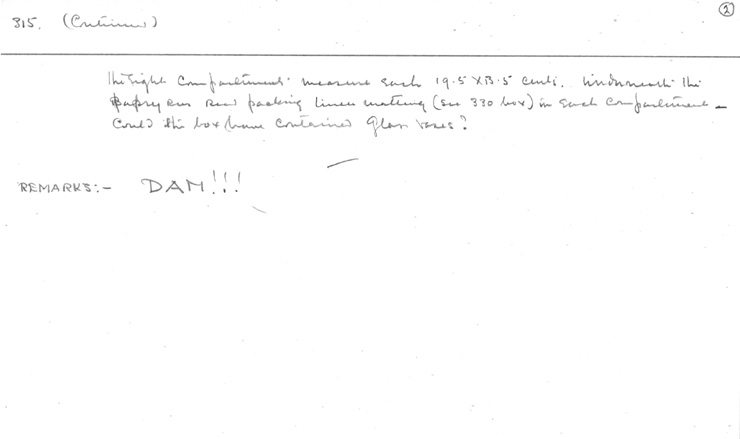 ②
315. (Continued)
The eight compartments measure each 19.5 X 13.5 cents. Underneath the
papyrus reed packing linen matting (see 330 box) in each compartment –
Could this box have contained glass vases?
REMARKS:- DAM!!!